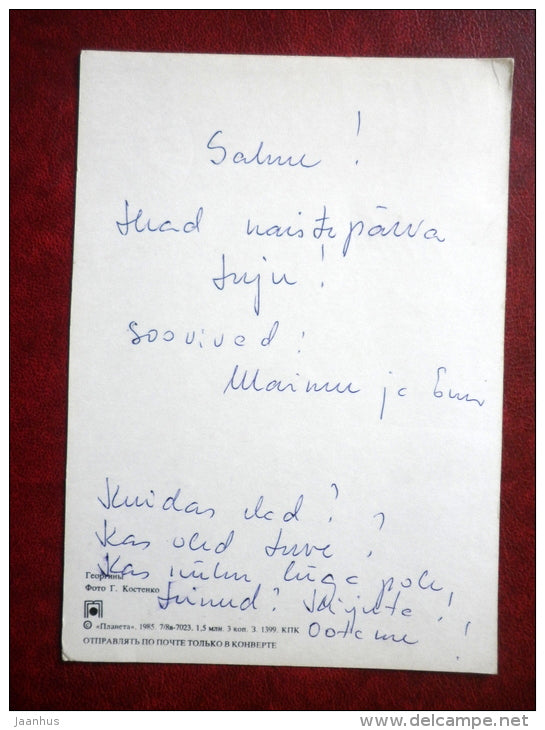 Salme!
Head naistepäeva
tuju!
Soovivad:
Maimu ja
Kuidas elad?
Kas oled terve?
Kas külm liiga pole
teinud? Kirjuta!
Ootame!
Георгины
Фото Г. Костенко
© «Планета», 1985. 7/8в-7023. 1,5 млн. 3 коп. З. 1399. КПК
ОТПРАВЛЯТЬ ПО ПОЧТЕ ТОЛЬКО В КОНВЕРТЕ
jaanhus
www.delcampe.net